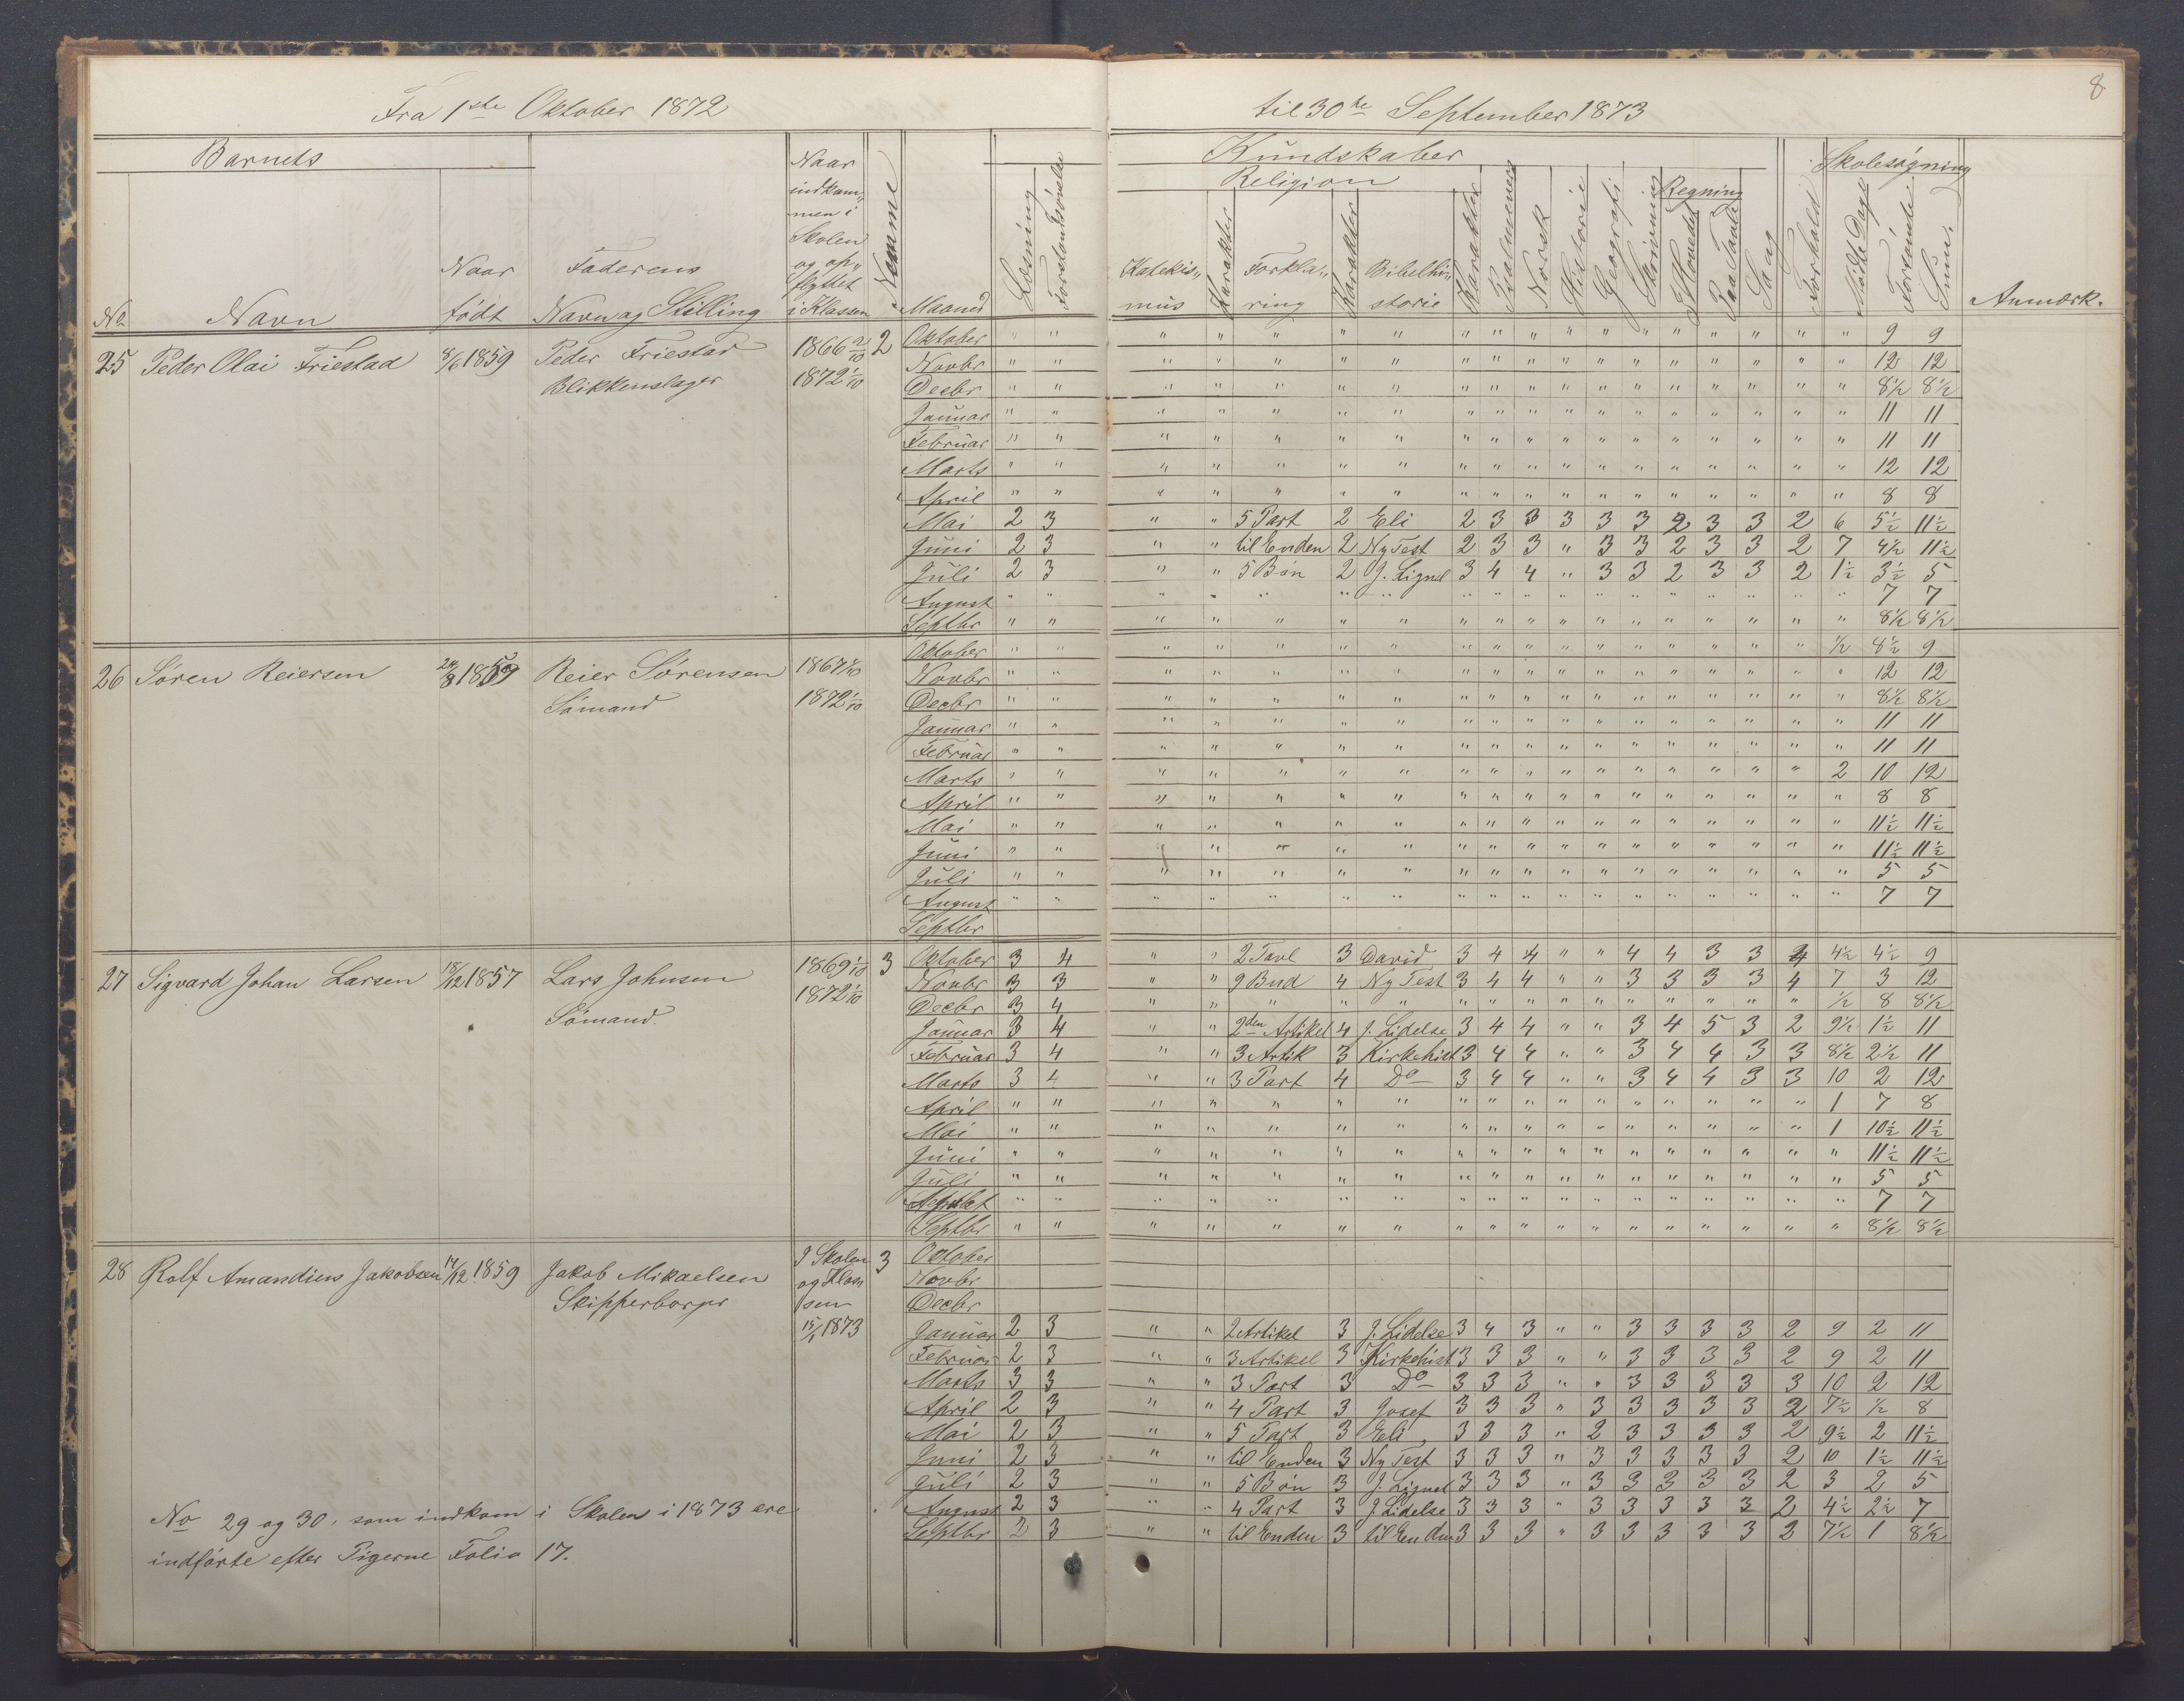 8
Fra 1ste Oktober 1872 til 30te September 1873
Barnets Kundskaber Skolesøgning
Religion Regning
No Navn Naar født Faderens Navn og Stilling Naar indkommen i Skolen og opflyttet i Klassen Nemme Maaned Læsning Forstandsøvelse Katekis„mus Karakter Forkla„ring Karakter Bibelhi„storie Karakter Psalmevers Norsk Historie Geografi Skrivning I Hovedet Paa Tavle Sang Forhold Mødte Dage Forsømte Sum. Anmærk.
25 Peder Olai Friestad 8/6 1859 Peder Friestad Blikkenslager 1866 2/10 1872 1/10 2
Oktober " " " " " " " " " " " " " " " " " " " 9 9
Novbr " " " " " " " " " " " " " " " " " " " 12 12
Decbr " " " " " " " " " " " " " " " " " " " 8½ 8½
Januar " " " " " " " " " " " " " " " " " " " 11 11
Februar " " " " " " " " " " " " " " " " " " " 11 11
Marts " " " " " " " " " " " " " " " " " " " 12 12
April " " " " " " " " " " " " " " " " " " " 8 8
Mai 2 3 " " 5 Part 2 Eli 2 3 3 3 3 3 2 3 3 2 6 5½ 11½
Juni 2 3 " " til Enden 2 Ny Test 2 3 3 " 3 3 2 3 3 2 7 4½ 11½
Juli 2 3 " " 5 Bøn 2 J. Lignel 3 4 4 " 3 3 2 3 3 2 1½ 3½ 5
August " " " " " " " " " " " " " " " " " " " 7 7
Septbr " " " " " " " " " " " " " " " " " " " 8½ 8½
26 Søren Reiersen 24/8 1859 Reier Sørensen Sømand 1867 1/10 1872 1/10
Oktober " " " " " " " " " " " " " " " " " " ½ 8½ 9
Novbr " " " " " " " " " " " " " " " " " " " 12 12
Decbr " " " " " " " " " " " " " " " " " " " 8½ 8½
Januar " " " " " " " " " " " " " " " " " " " 11 11
Februar " " " " " " " " " " " " " " " " " " " 11 11
Marts " " " " " " " " " " " " " " " " " " 2 10 12
April " " " " " " " " " " " " " " " " " " " 8 8
Mai " " " " " " " " " " " " " " " " " " " 11½ 11½
Juni " " " " " " " " " " " " " " " " " " 11½ 11½
Juli " " " " " " " " " " " " " " " " " " " 5 5
August " " " " " " " " " " " " " " " " " " " 7 7
Septbr
27 Sigvard Johan Larsen 18/12 1857 Lars Johnsen Sömand. 1869 1/10 1872 1/10 3
Oktober 3 4 " " 2 Tavl 3 David 3 4 4 " " 4 4 3 3 4 4½ 4½ 9
Novbr 3 3 " " 9 Bud 4 Ny Test 3 4 4 " " 3 3 3 3 4 7 3 12
Decbr 3 4 " " " " " " " " " " " " " " " ½ 8 8½
Januar 3 4 " " 2den Artikel 4 J. Lidelse 3 4 4 " " 3 4 5 3 2 9½ 1½ 11
Februar 3 4 " " 3 Artik 3 Kirkehist 3 4 4 " " 3 4 4 3 3 8½ 2½ 11
Marts 3 4 " " 3 Part 4 Do 3 4 4 " " 3 4 4 3 3 10 2 12
April " " " " " " " " " " " " " " " " " 1 7 8
Mai " " " " " " " " " " " " " " " " " 1 10½ 11½
Juni " " " " " " " " " " " " " " " " " " 11½ 11½
Juli " " " " " " " " " " " " " " " " " " 5 5
" " " " " " " " " " " " " " " " " " 7 7
Septbr " " " " " " " " " " " " " " " " " " 8½ 8½
28 Rolf Amandius Jakobsen 14/12 1859 Jakob Mikaelsen Skipperborger I Skolen og Klassen 15/1 1873 3
Oktober
Novbr
Decbr
Januar 2 3 " " 2 Artikel 3 J. Lidelse 3 4 3 " " 3 3 3 3 2 9 2 11
Februar 2 3 " " 3 Artikel 3 Kirkehist 3 3 3 " " 3 3 3 3 2 9 2 11
Marts 3 3 " " 3 Part 3 Do 3 3 3 " " 3 3 3 3 3 10 2 12
April 2 3 " " 4 Part 3 Josef 3 3 3 " 3 3 3 3 3 2 7½ ½ 8
Mai 2 3 " " 5 Part 3 Eli 3 3 3 " 2 3 3 3 3 2 9½ 2 11½
Juni 2 3 " " til Enden 3 Ny Test 3 3 3 " 3 3 3 3 3 2 10 1½ 11½
Juli 2 3 " " 5 Bøn 3 J. Lignel 3 3 3 " 3 3 3 3 3 2 3 2 5
August 2 3 " " 4 Part 3 J Lidelse 3 3 3 " 3 3 3 3 3 2 4½ 2½ 7
Septbr 2 3 " " til Enden 3 til Enden 3 3 3 " 3 3 3 3 3 2 7½ 1 8½
No 29 og 30, som indkom i Skolen i 1873 ere
indførte efter Pigerne Folio 17.